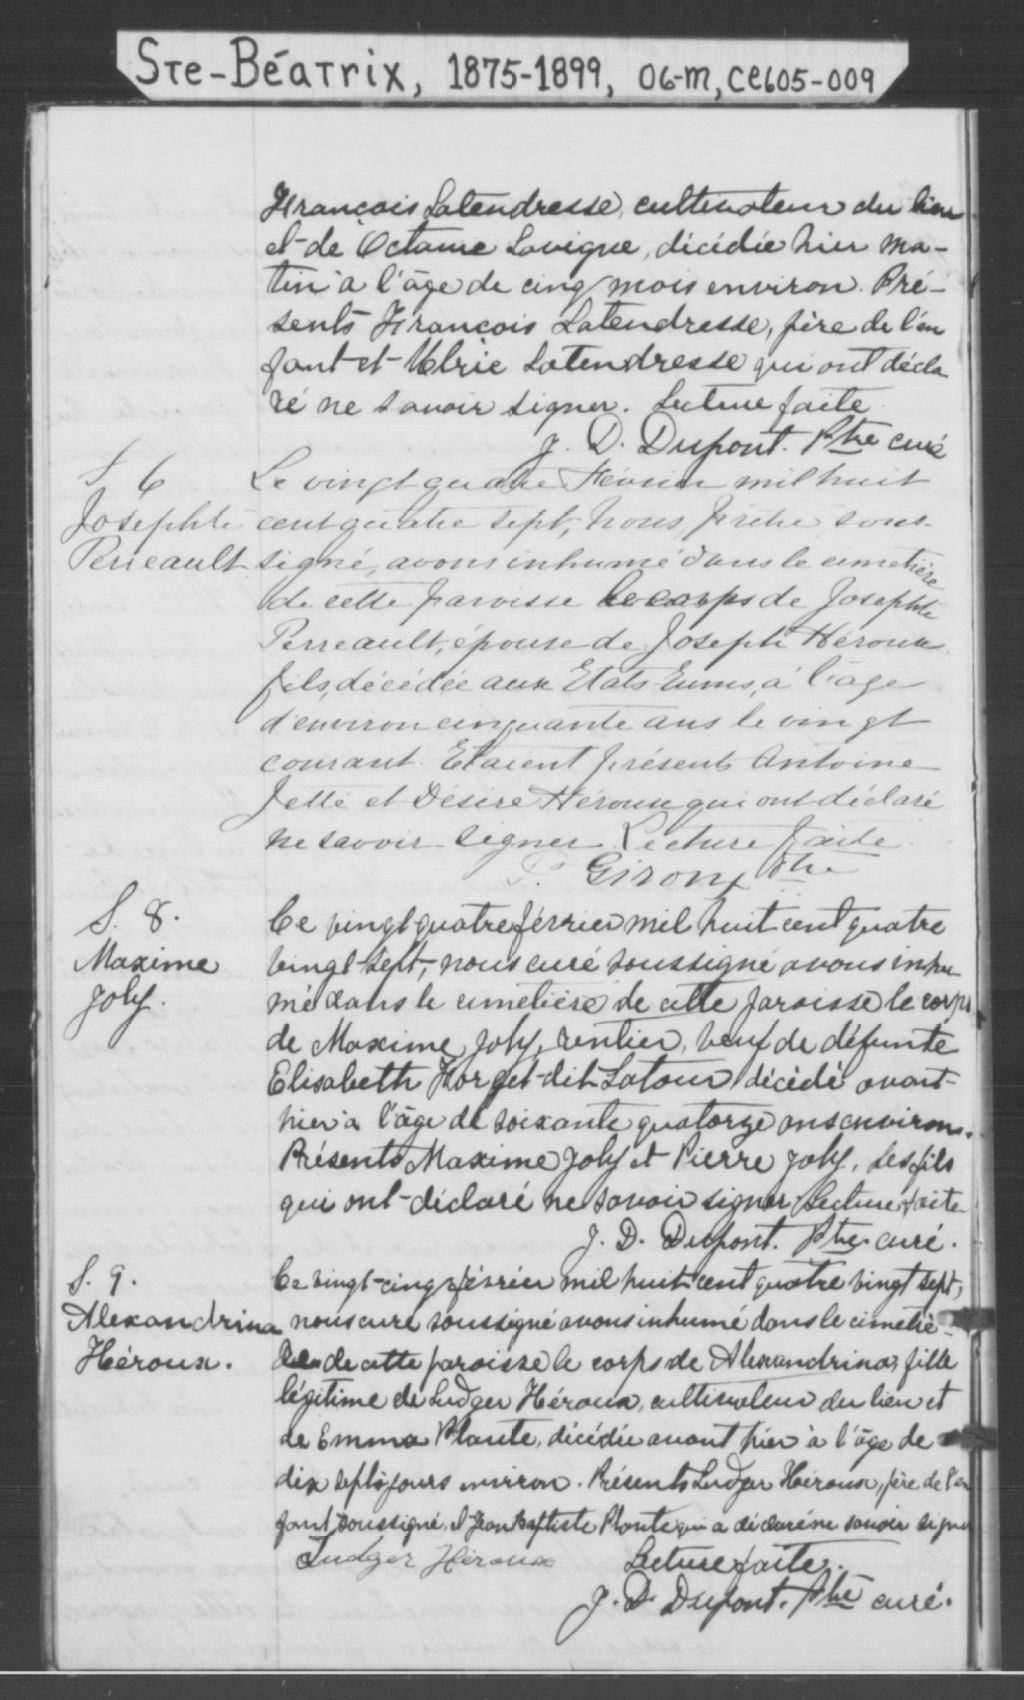 Ste-Béatrix, 1875-1899, 06-M, CE605-009
François Latendresse, cultivateur du lieu
et de Octavie Lavigne, décédée hier ma-
tin à l'âge de cinq mois environ. Pré-
sents François Latendresse, père de l'en
fant et Ulric Latendresse qui ont décla
ré ne savoir signer. Lecture faite.
J. D. Dupont. Ptre curé
S 6
Josephte
Perreault
Le vingt quatre Février mil huit
cent quatre sept, nous, prêtre sous-
signé, avons inhumé dans le cimetière
de cette paroisse le corps de Josephte
Perreault, épouse de Joseph Héroux
fils, décédée aux Etats Eunis, à l'âge
d'environ cinquante ans le vingt
courant. Etaient présents Antoine
Jetté et Désiré Héroux qui ont déclaré
ne savoir signer. Lecture faite.
Giroux Ptre
S. 8.
Maxime
Joly.
Ce vingt quatre février mil huit cent quatre
vingt-sept, nous curé soussigné avons inhu
mé dans le cimetière de cette paroisse le corps
de Maxime Joly, rentier, veuf de défunte
Elisabeth Forget-dit-Latour décédé avant-
hier à l'âge de soixante quatorze ans environ.
Présents Maxime Joly et Pierre Joly, ses fils
qui ont déclaré ne savoir signer. Lecture faite
J. D. Dupont. Ptre curé.
S. 9.
Alexandrina
Héroux.
Ce vingt-cinq février mil huit cent quatre vingt sept,
nous curé soussigné avons inhumé dans le cimetiè-
de cette paroisse le corps de Alexandrina, fille
légitime de Ludger Héroux, cultivateur du lieu et
de Emma Plante, décédée avant hier à l'âge de
dix sept jours environ. Présents Ludger Héroux, père de l'en
fant soussigné, et Jean Baptiste Plante qui a déclaré ne savoir signer
Ludger Héroux Lecture faite.
J. D. Dupont. Ptre curé.